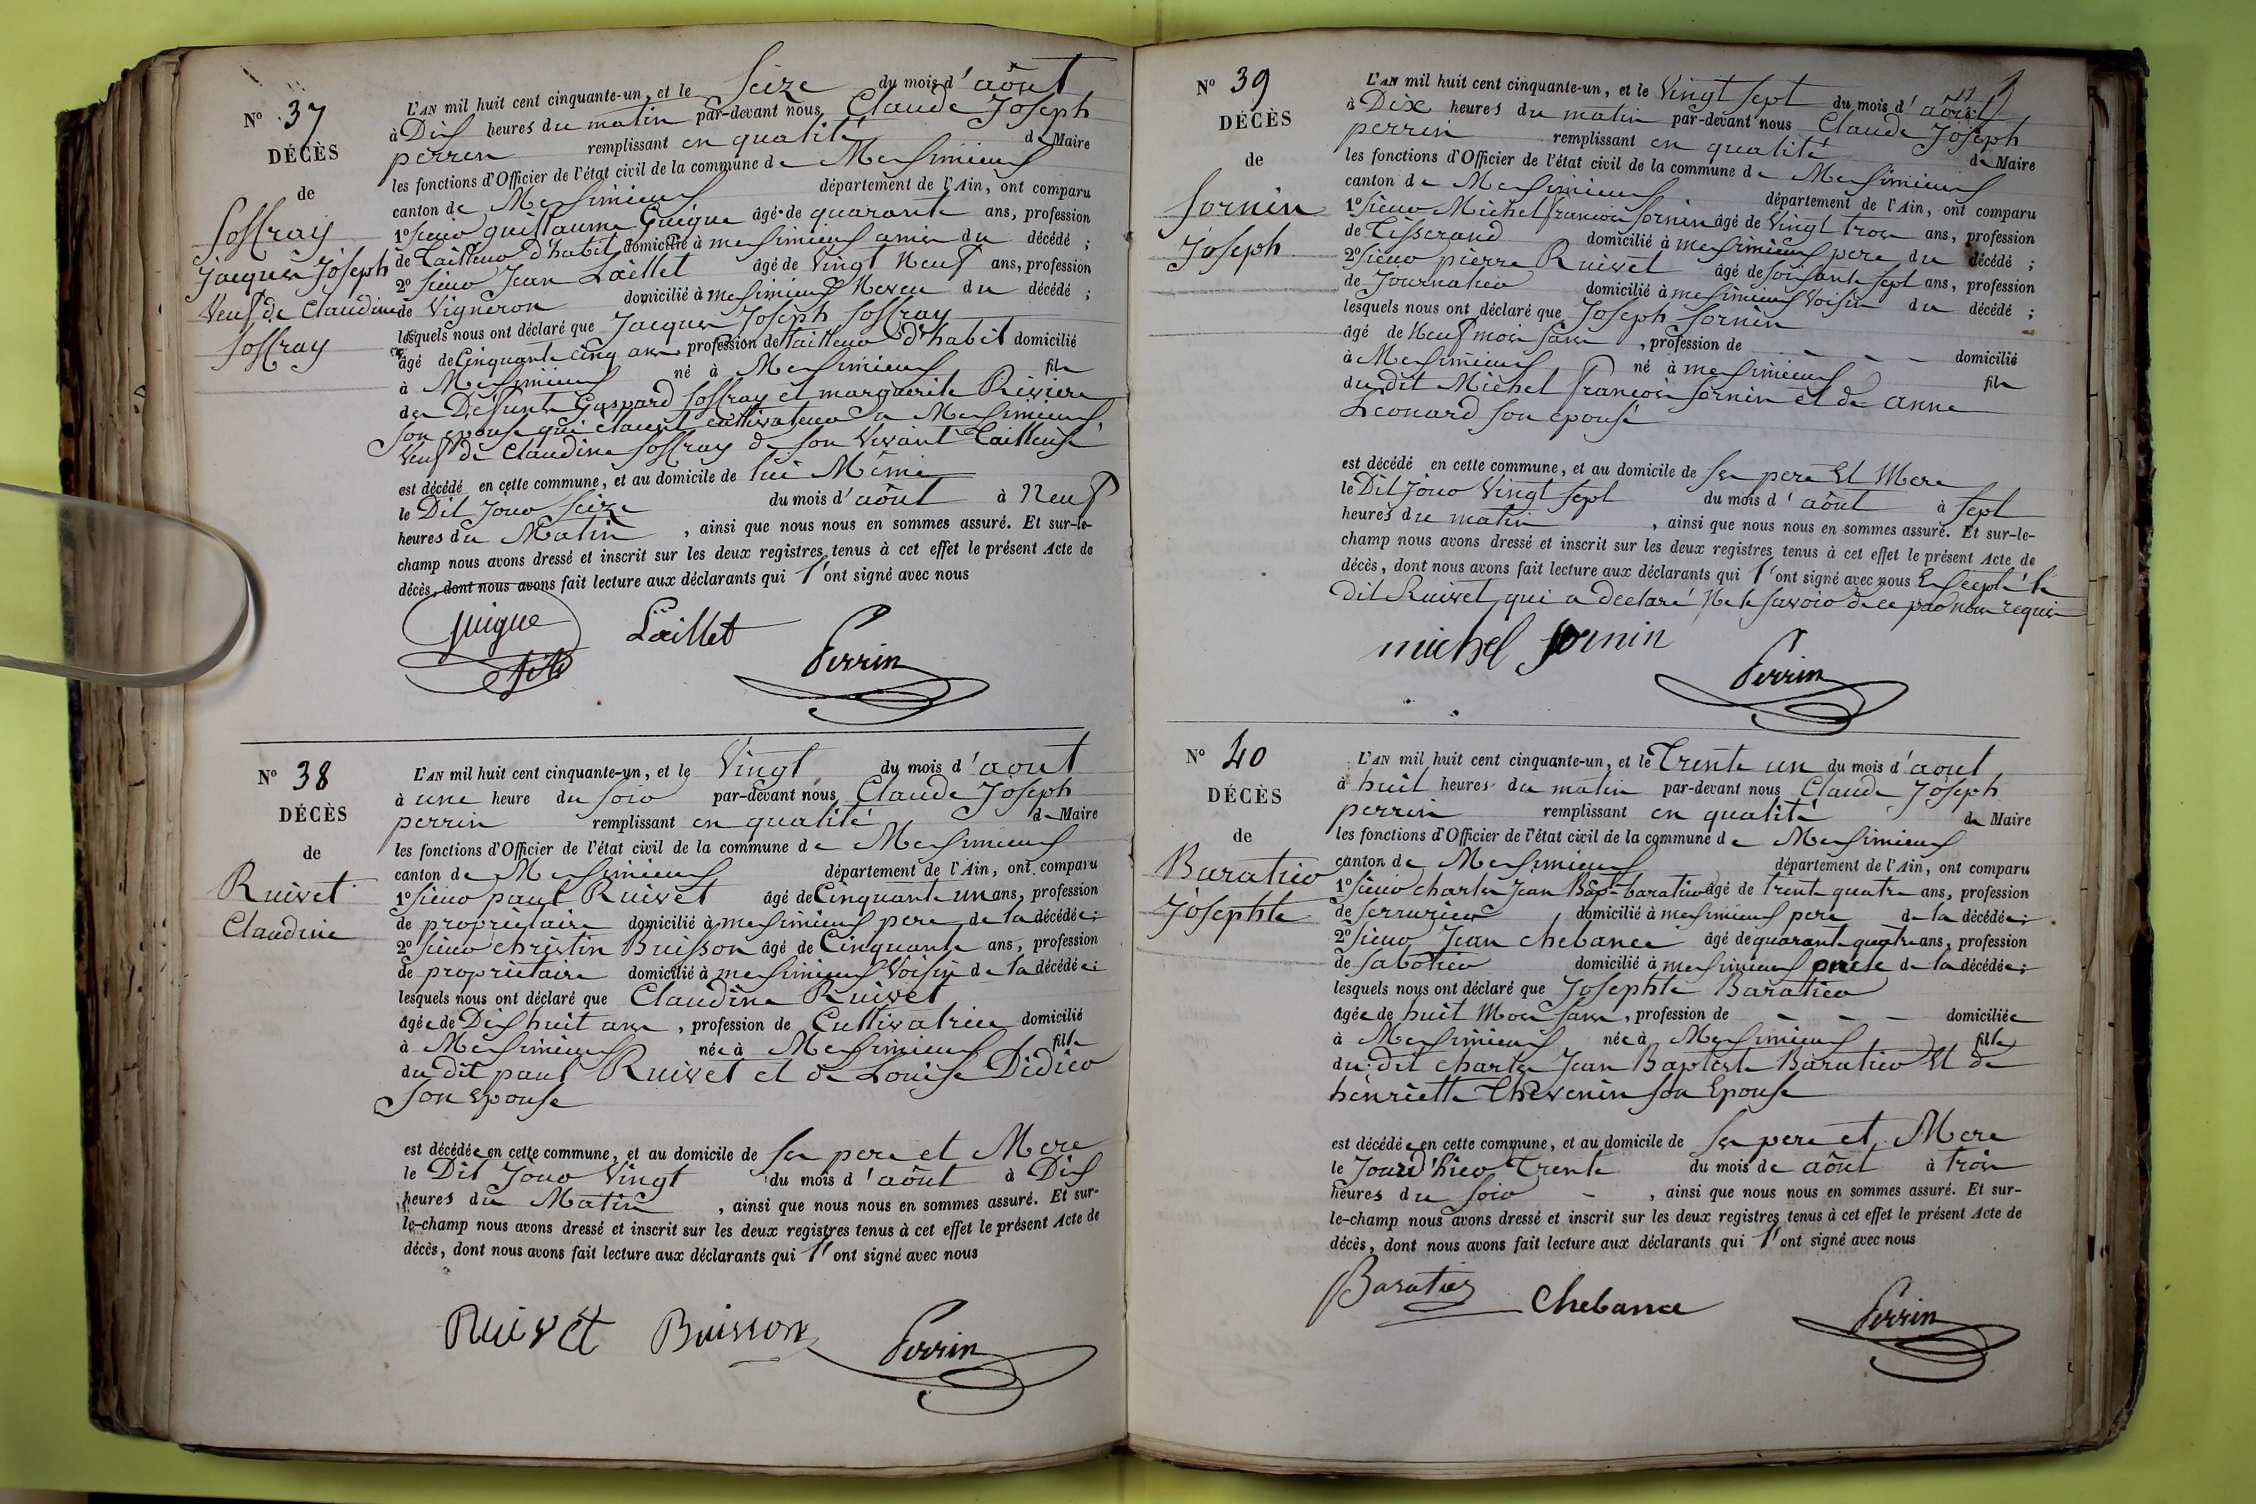 N° 37
DÉCÈS
de
Soffray
Jacques Joseph
Veuf de Claudine
Soffray
L'AN mil huit cent cinquante-un, et le Seize du mois d'aôut
à Dix heures du matin par-devant nous Claude Joseph
perrin remplissant en qualité de Maire
les fonctions d'Officier de l'état civil de la commune de Meximieux
canton de Meximieux département de l'Ain, ont comparu
1° Sieur guillaume Guigue âgé de quarante ans, profession
de Tailleur d'habit domicilié à meximieux amis du décédé ;
2° Sieur Jean Laillet âgé de Vingt Neuf ans, profession
de Vigneron domicilié à meximieux Neveu du décédé ;
lesquels nous ont déclaré que Jacques Joseph Soffray
âgé de Cinquante cinq ans profession de tailleur d'habit domicilié
à Meximieux né à Meximieux fils
des Defunts Gaspard Soffray et marguerite Riviere
son epouse qui etaient cultivateurs a Meximieux
Veuf de Claudine Soffray de son Vivant Tailleuse
est décédé en cette commune, et au domicile de lui Même
le Dit Jour Seize du mois d'aôut à Neuf
heures du Matin , ainsi que nous nous en sommes assuré. Et sur-le-
champ nous avons dressé et inscrit sur les deux registres tenus à cet effet le présent Acte de
décès, dont nous avons fait lecture aux déclarants qui l'ont signé avec nous
guigue Laillet Perrin
N° 38
DÉCÈS
de
Ruivet
Claudine
L'AN mil huit cent cinquante-un, et le Vingt du mois d'aout
à une heure du soir par-devant nous Claude Joseph
perrin remplissant en qualité de Maire
les fonctions d'Officier de l'état civil de la commune de Meximieux
canton de Meximieux département de l'Ain, ont comparu
1° Sieur paul Ruivet âgé de Cinquante un ans, profession
de proprietaire domicilié à meximieux pere de la décédée ;
2° Sieur christin Buisson âgé de Cinquante ans, profession
de proprietaire domicilié à meximieux Voisin de la décédée ;
lesquels nous ont déclaré que Claudine Ruivet
âgée de Dix huit ans , profession de Cultivatrice domicilié
à Meximieux née à Meximieux fille
du dit paul Ruivet et de Louise Didier
son Epouse
est décédée en cette commune, et au domicile de ses pere et Mere
le Dit Jour Vingt du mois d'aôut à Dix
heures du Matin , ainsi que nous nous en sommes assuré. Et sur-
le-champ nous avons dressé et inscrit sur les deux registres tenus à cet effet le présent Acte de
décès, dont nous avons fait lecture aux déclarants qui l'ont signé avec nous
Ruivet Buisson Perrin
N° 39
DÉCÈS
de
Sornin
Joseph
L'AN mil huit cent cinquante-un, et le Vingt Sept du mois d'aôut
à Dix heures du matin par-devant nous Claude Joseph
perrin remplissant en qualité de Maire
les fonctions d'Officier de l'état civil de la commune de Meximieux
canton de Meximieux département de l'Ain, ont comparu
1° Sieur Michel françois Sornin âgé de Vingt trois ans, profession
de Tisserand domicilié à meximieux pere du décédé ;
2° Sieur pierre Ruivet âgé de soixante sept ans, profession
de Journalier domicilié à meximieux Voisin du décédé ;
lesquels nous ont déclaré que Joseph Sornin
âgé de Neuf mois sans , profession de - - - domicilié
à Meximieux né à meximieux fils
du dit Michel françois Sornin et de anne
Léonard son epouse
est décédé en cette commune, et au domicile de ses pere Et Mere
le Dit Jour Vingt sept du mois d'aôut à sept
heures du matin , ainsi que nous nous en sommes assuré. Et sur-le-
champ nous avons dressé et inscrit sur les deux registres tenus à cet effet le présent Acte de
décès, dont nous avons fait lecture aux déclarants qui l'ont signé avec nous Excepté le
dit Ruivet qui a declaré Ne le savoir de ce par nous requis
michel sornin Perrin
N° 40
DÉCÈS
de
Baratier
Josephte
L'AN mil huit cent cinquante-un, et le Trente un du mois d'aout
à huit heures du matin par-devant nous Claude Joseph
perrin remplissant en qualité de Maire
les fonctions d'Officier de l'état civil de la commune de Meximieux
canton de Meximieux département de l'Ain, ont comparu
1° Sieur charles Jean Bap-te baratier âgé de trente quatre ans, profession
de serrurier , domicilié à meximieux pere de la décédée ;
2° Sieur Jean chebance âgé de quarante quatre ans, profession
de sabotier domicilié à meximieux de la décédée ;
lesquels nous ont déclaré que Josephte Baratier
âgée de huit Mois sans , profession de - - - domiciliée
à Meximieux née à Meximieux fille
du dit charles Jean Baptiste Baratier Et de
henriette Thevenin son Epouse
est décédée en cette commune, et au domicile de ses pere et Mere
le Jour d'hier Trente du mois de aôut à trois
heures du soir - , ainsi que nous nous en sommes assuré. Et sur-
le-champ nous avons dressé et inscrit sur les deux registres tenus à cet effet le présent Acte de
décès, dont nous avons fait lecture aux déclarants qui l'ont signé avec nous
Baratier Chebance Perrin